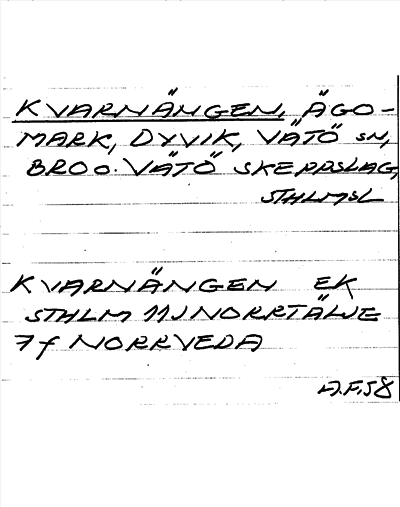 KVARNÄNGEN, ÄGO-
MARK, DYVIK, VÄTÖ SN,
BRO O. VÄTÖ SKEPPSLAG,
STHLMSL
KVARNÄNGEN EK
STHLM 11J NORRTÄLJE
7f NORRVEDA
A.F. 58